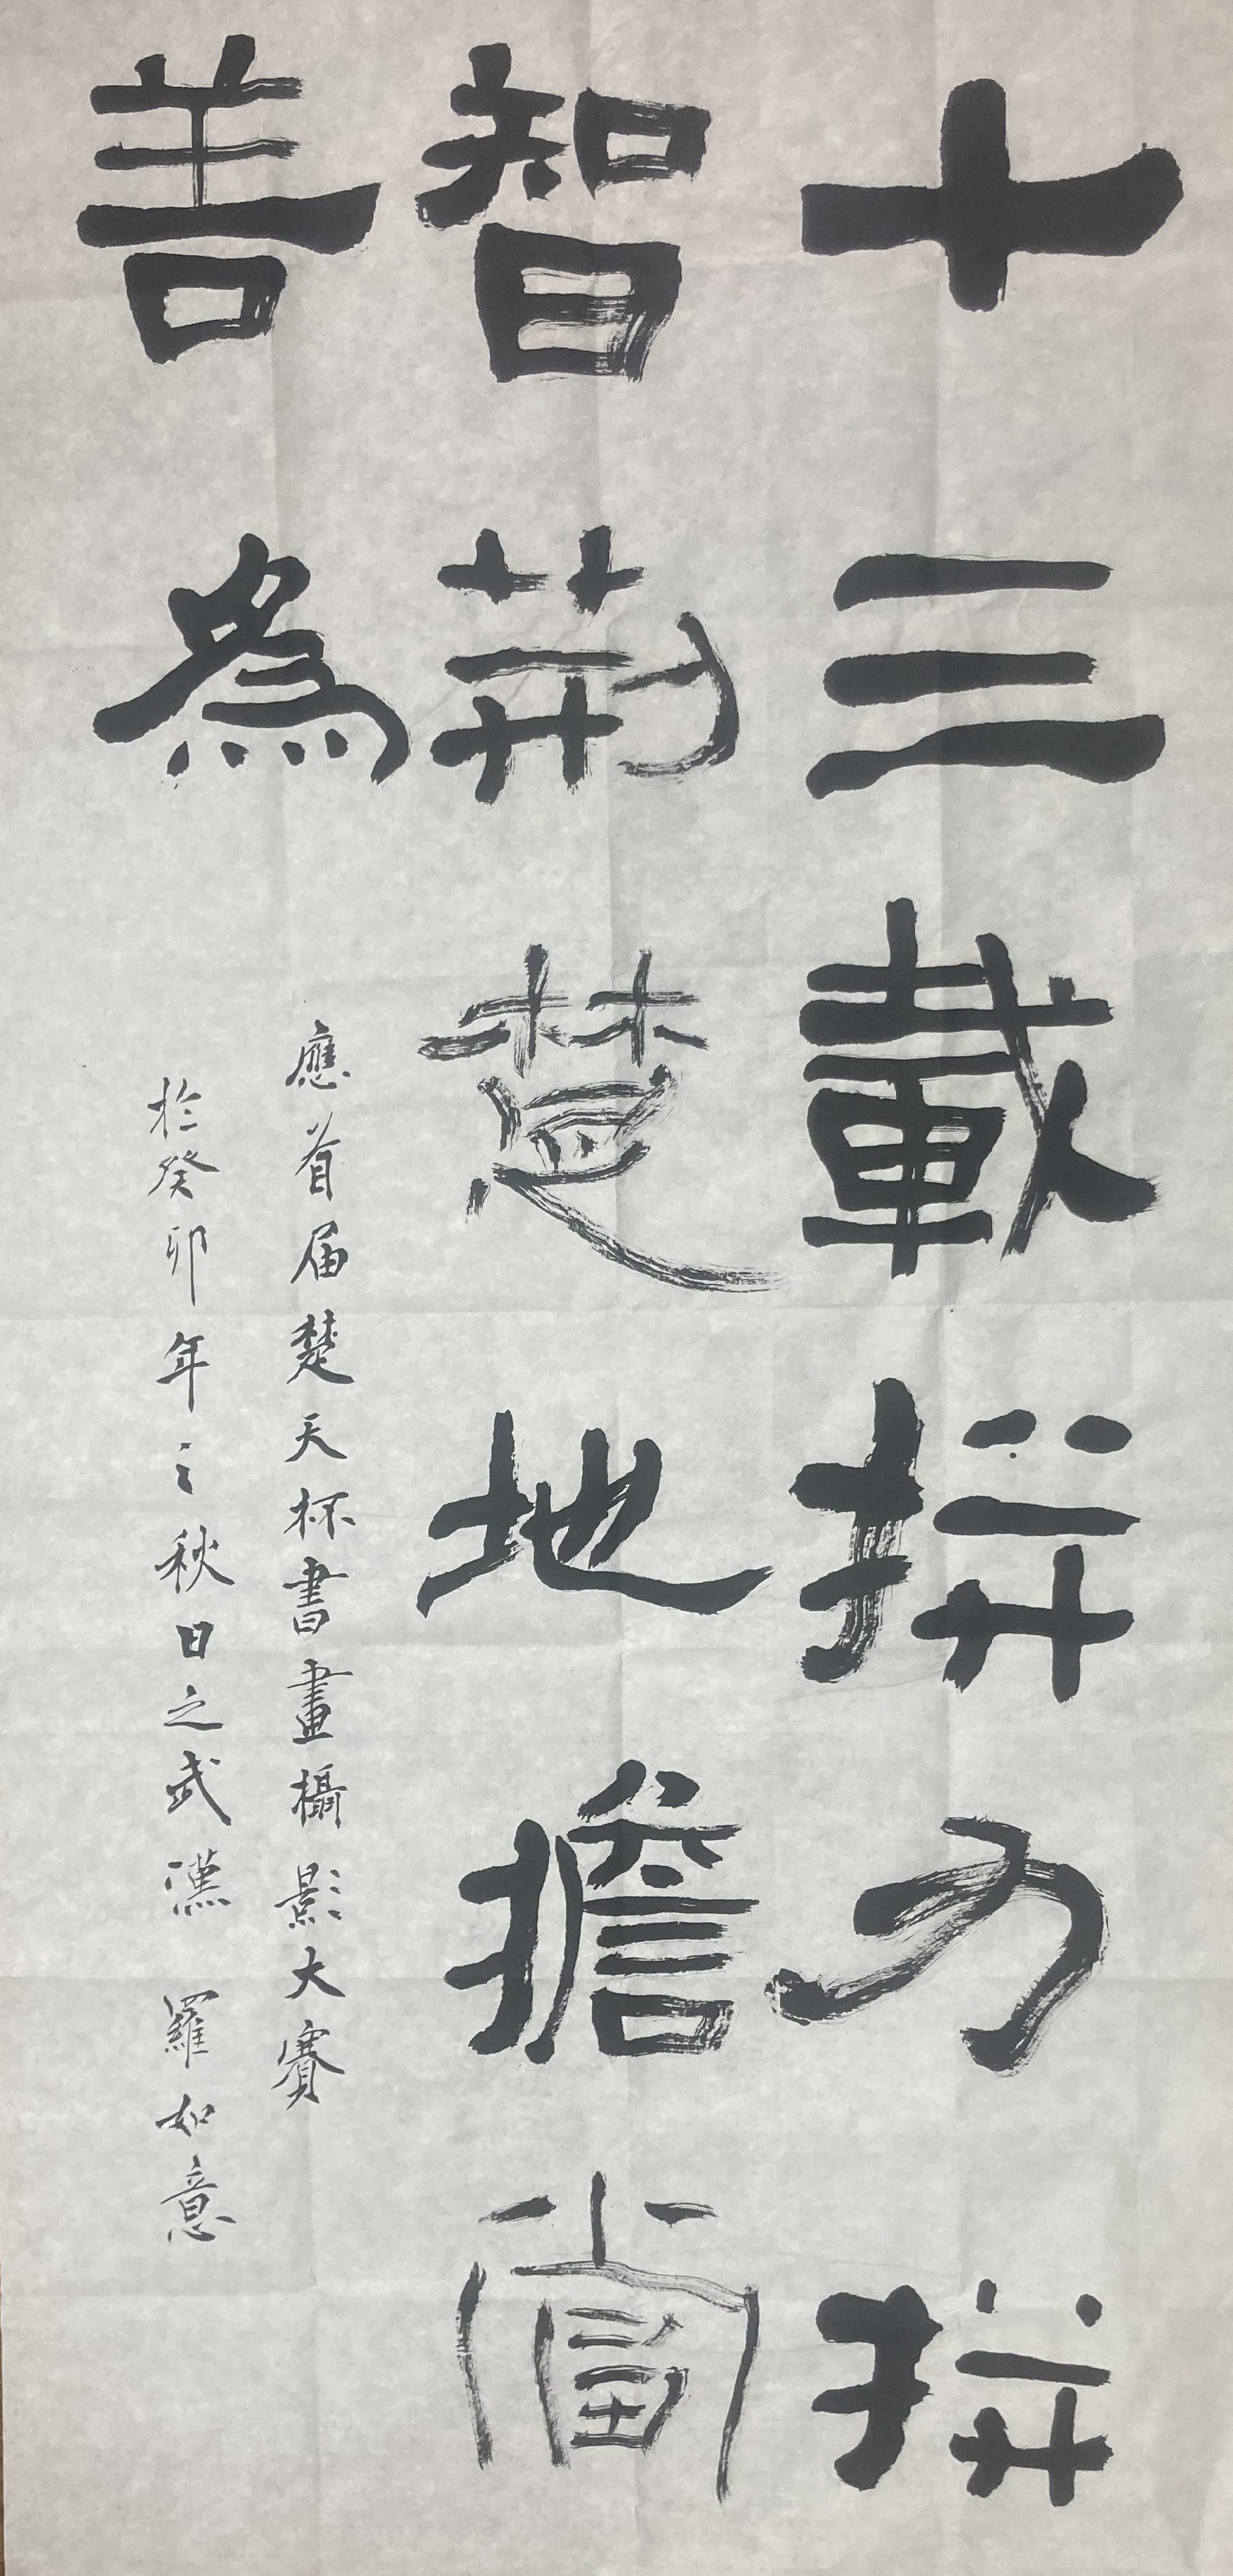 十三載拼力拼
智荆楚地擔當
善為
應首届楚天杯書畫攝影大賽
於癸卯年之秋日之武漢 羅如意